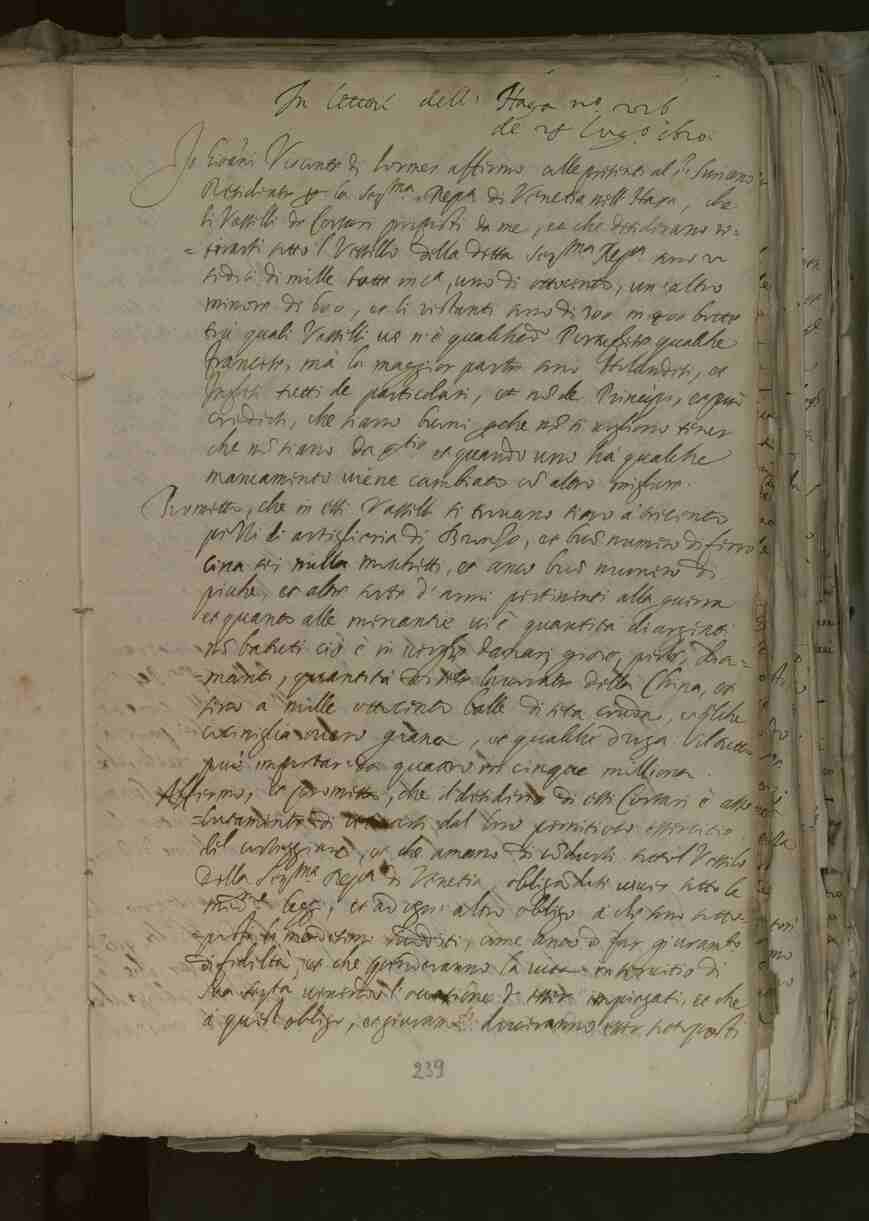 In lettere dell' Haga nº 226
de 28 lugº 1620.
Io Viconte di Lormes affermo alle presenti al sr. Suriano
Residente per la Sermª Repª di Venetia nell' Haga, che
li Vasselli de Corsari proposti da me, et che desiderano ri=
=tirarsi sotto l' Vessillo della detta Sermª Repª sono
sedici di mille botte inca, uno di ottocento, un' altro
minore di 600, et li restanti sono di 300 in 400 botte
trà quali Vasselli ve n'è qualched' qualche
francese, mà la maggior parte sono Holandesi, et
Inglesi tutti de particolari, et nõ de Principi, et può
credersi, che siano buoni perche nõ si vogliono tener
che nõ siano da et quando uno hà qualche
mancamento viene cambiato cõ altro migliore.
Prometto, che in essi Vasselli si trovano sino à trecento
pezzi di artigliaria di Bronzo, et buõ numero di ferro
circa sei milla moschetti, et anco buõ numero di
piche, et altre sorte d' armi pertinenti alla guerra
et quanto alle mercantie vi è quantità di argenti
nõ batuti ciò è in verghe danari perle, Dia=
=manti, quantità di lavorate della China, et
sino à mille ottocento balle di seta cruda, qualche
cociniglia overo grana, et qualche droga. Il tutto
può importar da quatro in cinque millioni.
Affermo, et prometto, che il desiderio di essi Corsari è asso=
=lutamente di dal loro essercitio
del corseggiare, et che amano di cõdursi sotto l' Vessillo
della Sermª Repª di Venetia, obligãdosi viver sotto le
leggi, et ad ogni altro obligo à che sono sotto=
=posti li medesimi sudditi, come anco di far giuramto
di fideltà, et che spenderanno la vita in servitio di
Sua Sertà venendo l' occasione d' esser impiegati, et che
à quest' obligo, et giuramto doveranno esser sottoposti
239